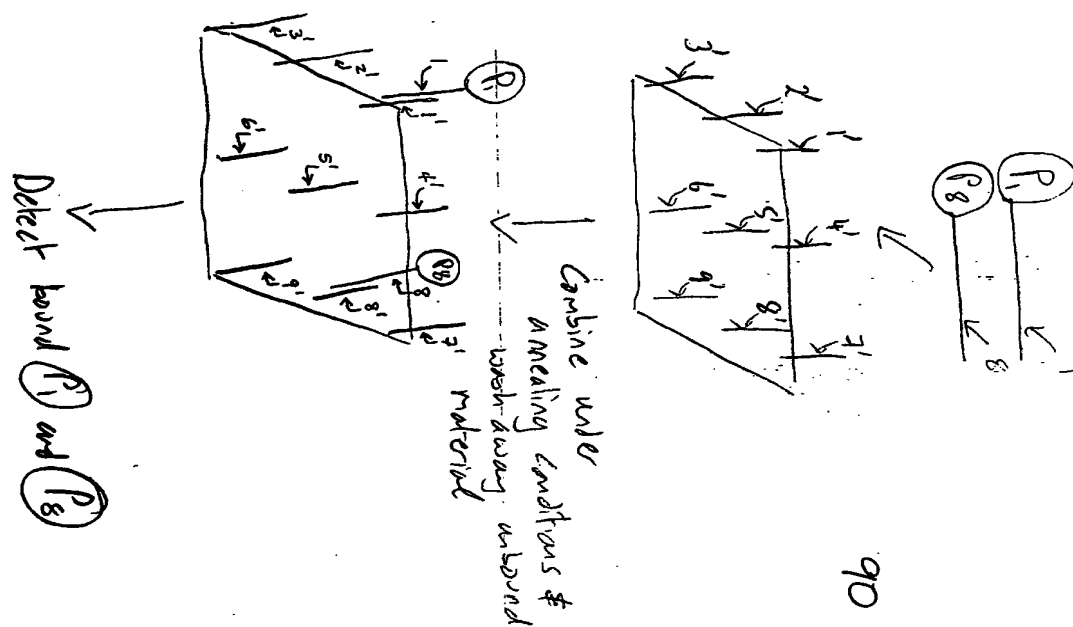 9b
P1 1
P8 8
1' 4' 7'
2' 5' 8'
3' 6' 9'
Combine under
annealing conditions &
wash away unbound
material
P1 P8
1 8
1' 4' 7'
2' 5' 8'
3' 6' 9'
Detect bound P1 and P8